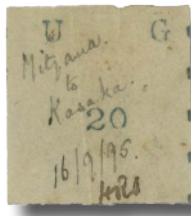 U G
Mityana.
to
Kasaka.
20
16/9/95.